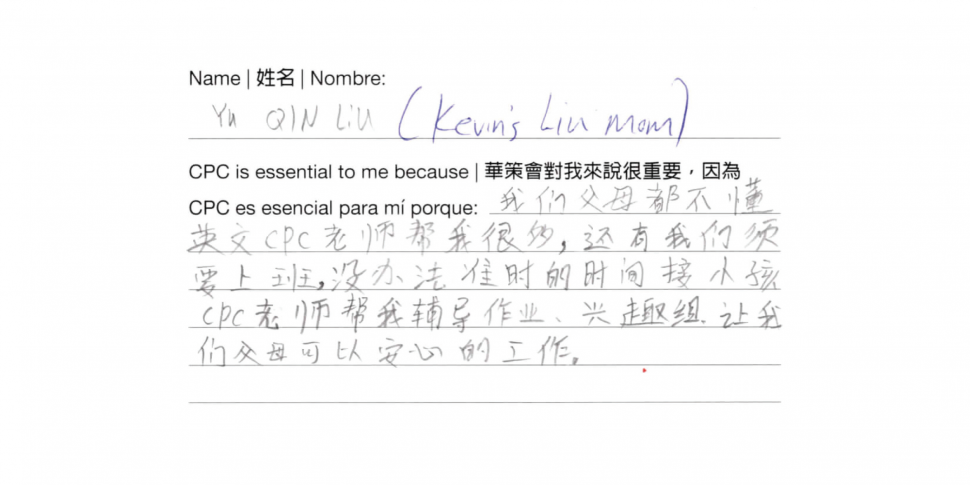 Name | 姓名 | Nombre:
Yu QIN LiU (Kevin's Liu mom)
CPC is essential to me because | 華策會對我來說很重要，因為
CPC es esencial para mí porque: 我们父母都不懂
英文CPC老师帮我很多，还有我们须
要上班，没办法准时的时间接小孩
CPC老师帮我辅导作业、兴趣组.让我
们父母可以安心的工作。